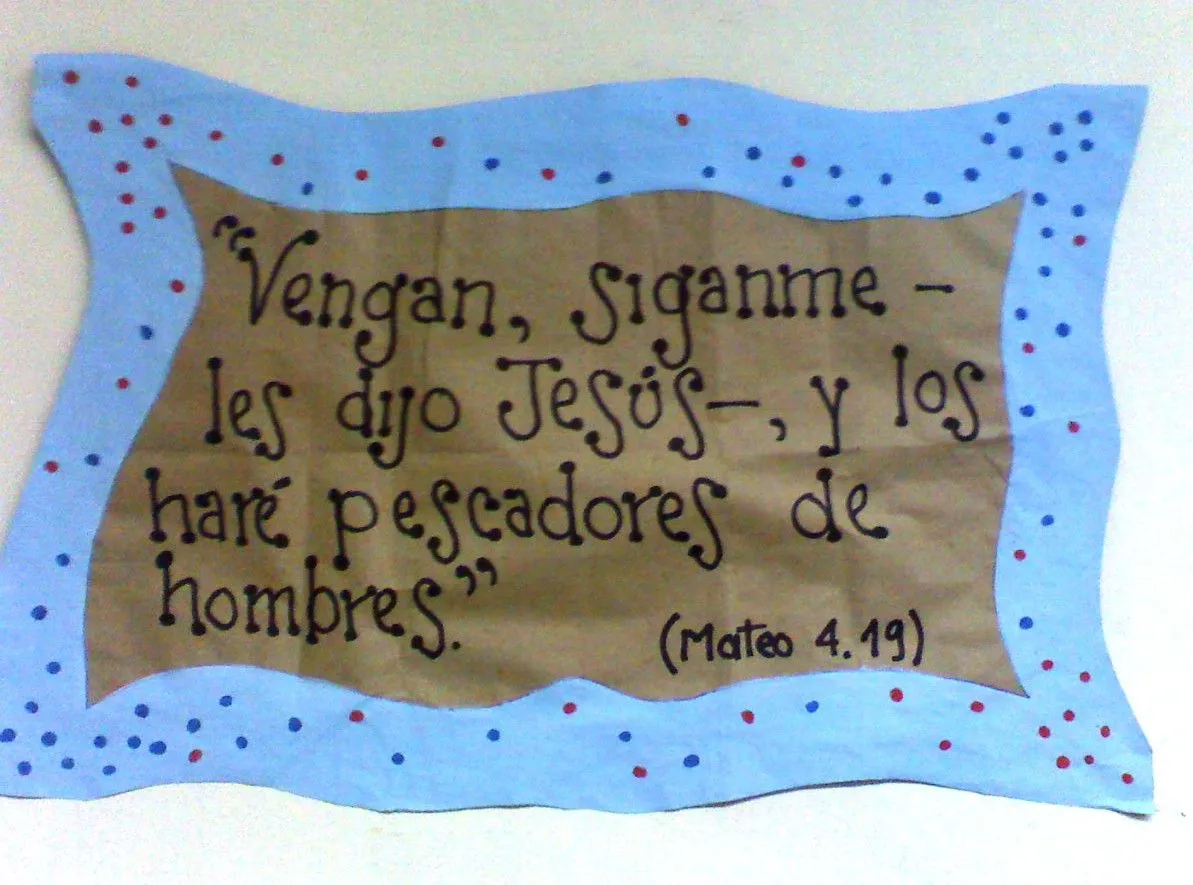 “Vengan, siganme –
les dijo Jesús–, y los
haré pescadores de
hombres.”
(Mateo 4.19)